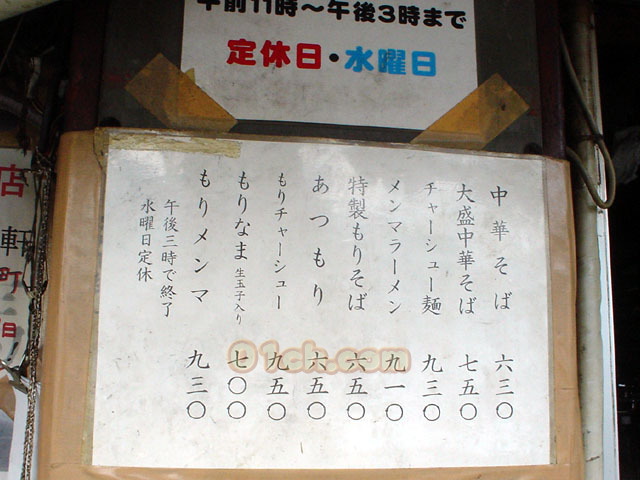 午前11時〜午後3時まで
定休日・水曜日
中華そば 六三〇
大盛中華そば 七五〇
チャーシュー麺 九三〇
メンマラーメン 九一〇
特製もりそば 六五〇
あつもり 六五〇
もりチャーシュー 九五〇
もりなま 生玉子入り 七〇〇
もりメンマ 九三〇
午後三時で終了
水曜日定休
店
軒
町
日
01ch.com